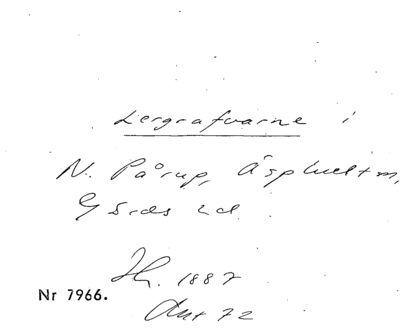 Lergrafvarne i
N. Pårup, Äsphult m,
Gärds hd.
Hr. 1887
Nr 7966.
Ant 72